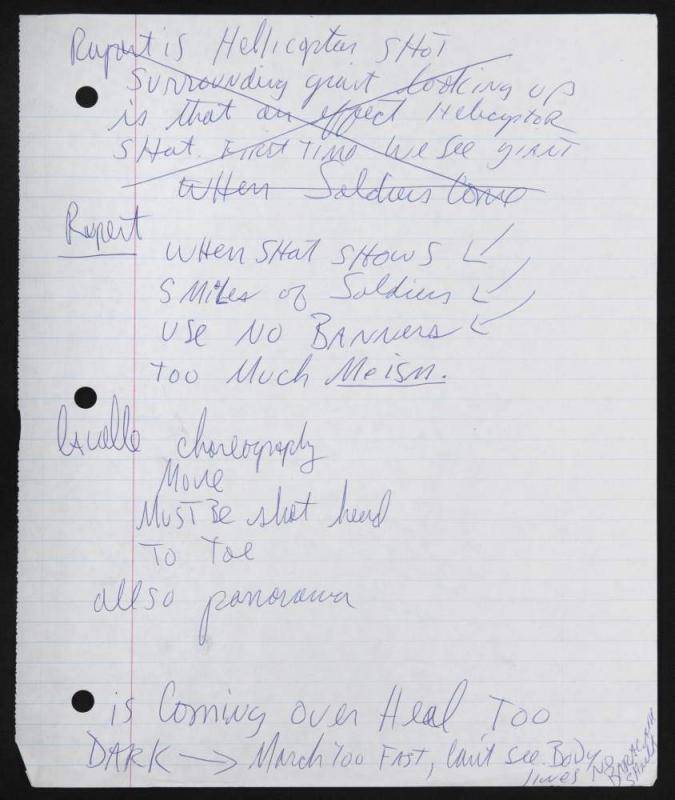 Rupert is Hellicopter SHot
Surrounding giant looking up
is that an effect Helicopter
SHot. First Time We See giant
When Soldiers Come
Rupert
WHen SHot SHows
SMiles of Soldiers
USe No BANNers
Too Much Meism.
LAvelle choreography
Move
MUST Be shot head
To Toe
allso panorama
is Coming over Heal Too
DARK → March Too FAST, Can't see Body
lines
NO